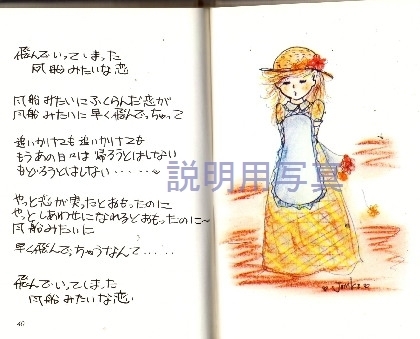 飛んでいってしまった
風船みたいな恋
風船みたいにふくらんだ恋が
風船みたいに早く飛んでっちゃって
追いかけても追いかけても
もうあの日々は帰ろうとはしない
もどろうとはしない・・・・・〜
やっと恋が実ったとおもったのに
やっとしあわせになれるとおもったのに〜
風船みたいに
早く飛んでっちゃうなんて・・・・・
飛んでいってしまった
風船みたいな恋
46
説明用写真
Junko